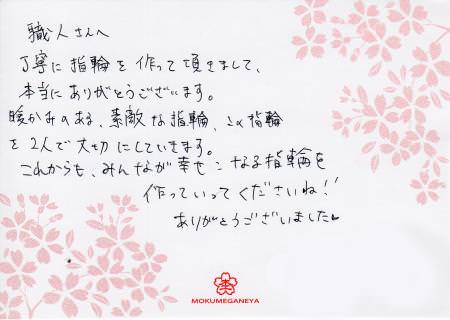 職人さんへ
丁寧に指輪を作って頂きまして、
本当にありがとうございます。
暖かみのある、素敵な指輪、この指輪
を2人で大切にしていきます。
これからも、みんなが幸せになる指輪を
作っていってくださいね!!
ありがとうございました♥
MOKUMEGANEYA